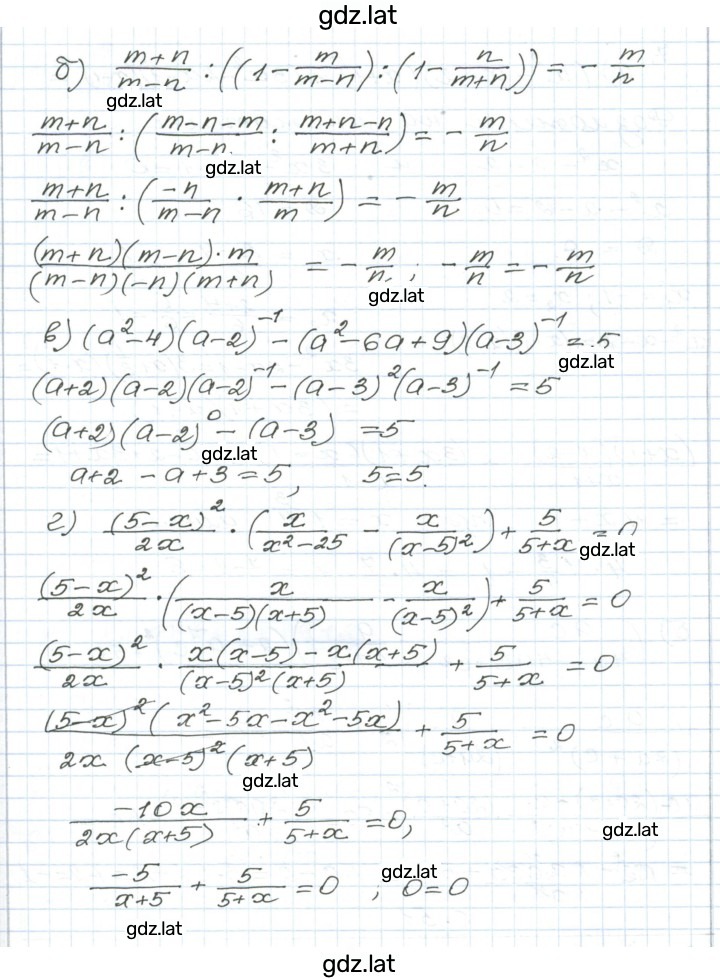 gdz.lat
б) \frac{m+n}{m-n} : ((1 - \frac{m}{m-n}) : (1 - \frac{n}{m+n})) = -\frac{m}{n}
gdz.lat
\frac{m+n}{m-n} : (\frac{m-n-m}{m-n} : \frac{m+n-n}{m+n}) = -\frac{m}{n}
gdz.lat
\frac{m+n}{m-n} : (\frac{-n}{m-n} · \frac{m+n}{m}) = -\frac{m}{n}
\frac{(m+n)(m-n)·m}{(m-n)(-n)(m+n)} = -\frac{m}{n}; -\frac{m}{n} = -\frac{m}{n}
gdz.lat
в) (a²-4)(a-2)⁻¹ - (a²-6a+9)(a-3)⁻¹ = 5
gdz.lat
(a+2)(a-2)(a-2)⁻¹ - (a-3)²(a-3)⁻¹ = 5
(a+2)(a-2)⁰ - (a-3) = 5
gdz.lat
a+2 - a+3 = 5, 5=5.
г) \frac{(5-x)²}{2x} · (\frac{x}{x²-25} - \frac{x}{(x-5)²}) + \frac{5}{5+x} = 0
gdz.lat
\frac{(5-x)²}{2x} · (\frac{x}{(x-5)(x+5)} - \frac{x}{(x-5)²}) + \frac{5}{5+x} = 0
\frac{(5-x)²}{2x} · \frac{x(x-5) - x(x+5)}{(x-5)²(x+5)} + \frac{5}{5+x} = 0
\frac{(5-x)²(x²-5x-x²-5x)}{2x (x-5)²(x+5)} + \frac{5}{5+x} = 0
gdz.lat
\frac{-10x}{2x(x+5)} + \frac{5}{5+x} = 0,
gdz.lat
\frac{-5}{x+5} + \frac{5}{5+x} = 0 ; 0=0
gdz.lat
gdz.lat
gdz.lat